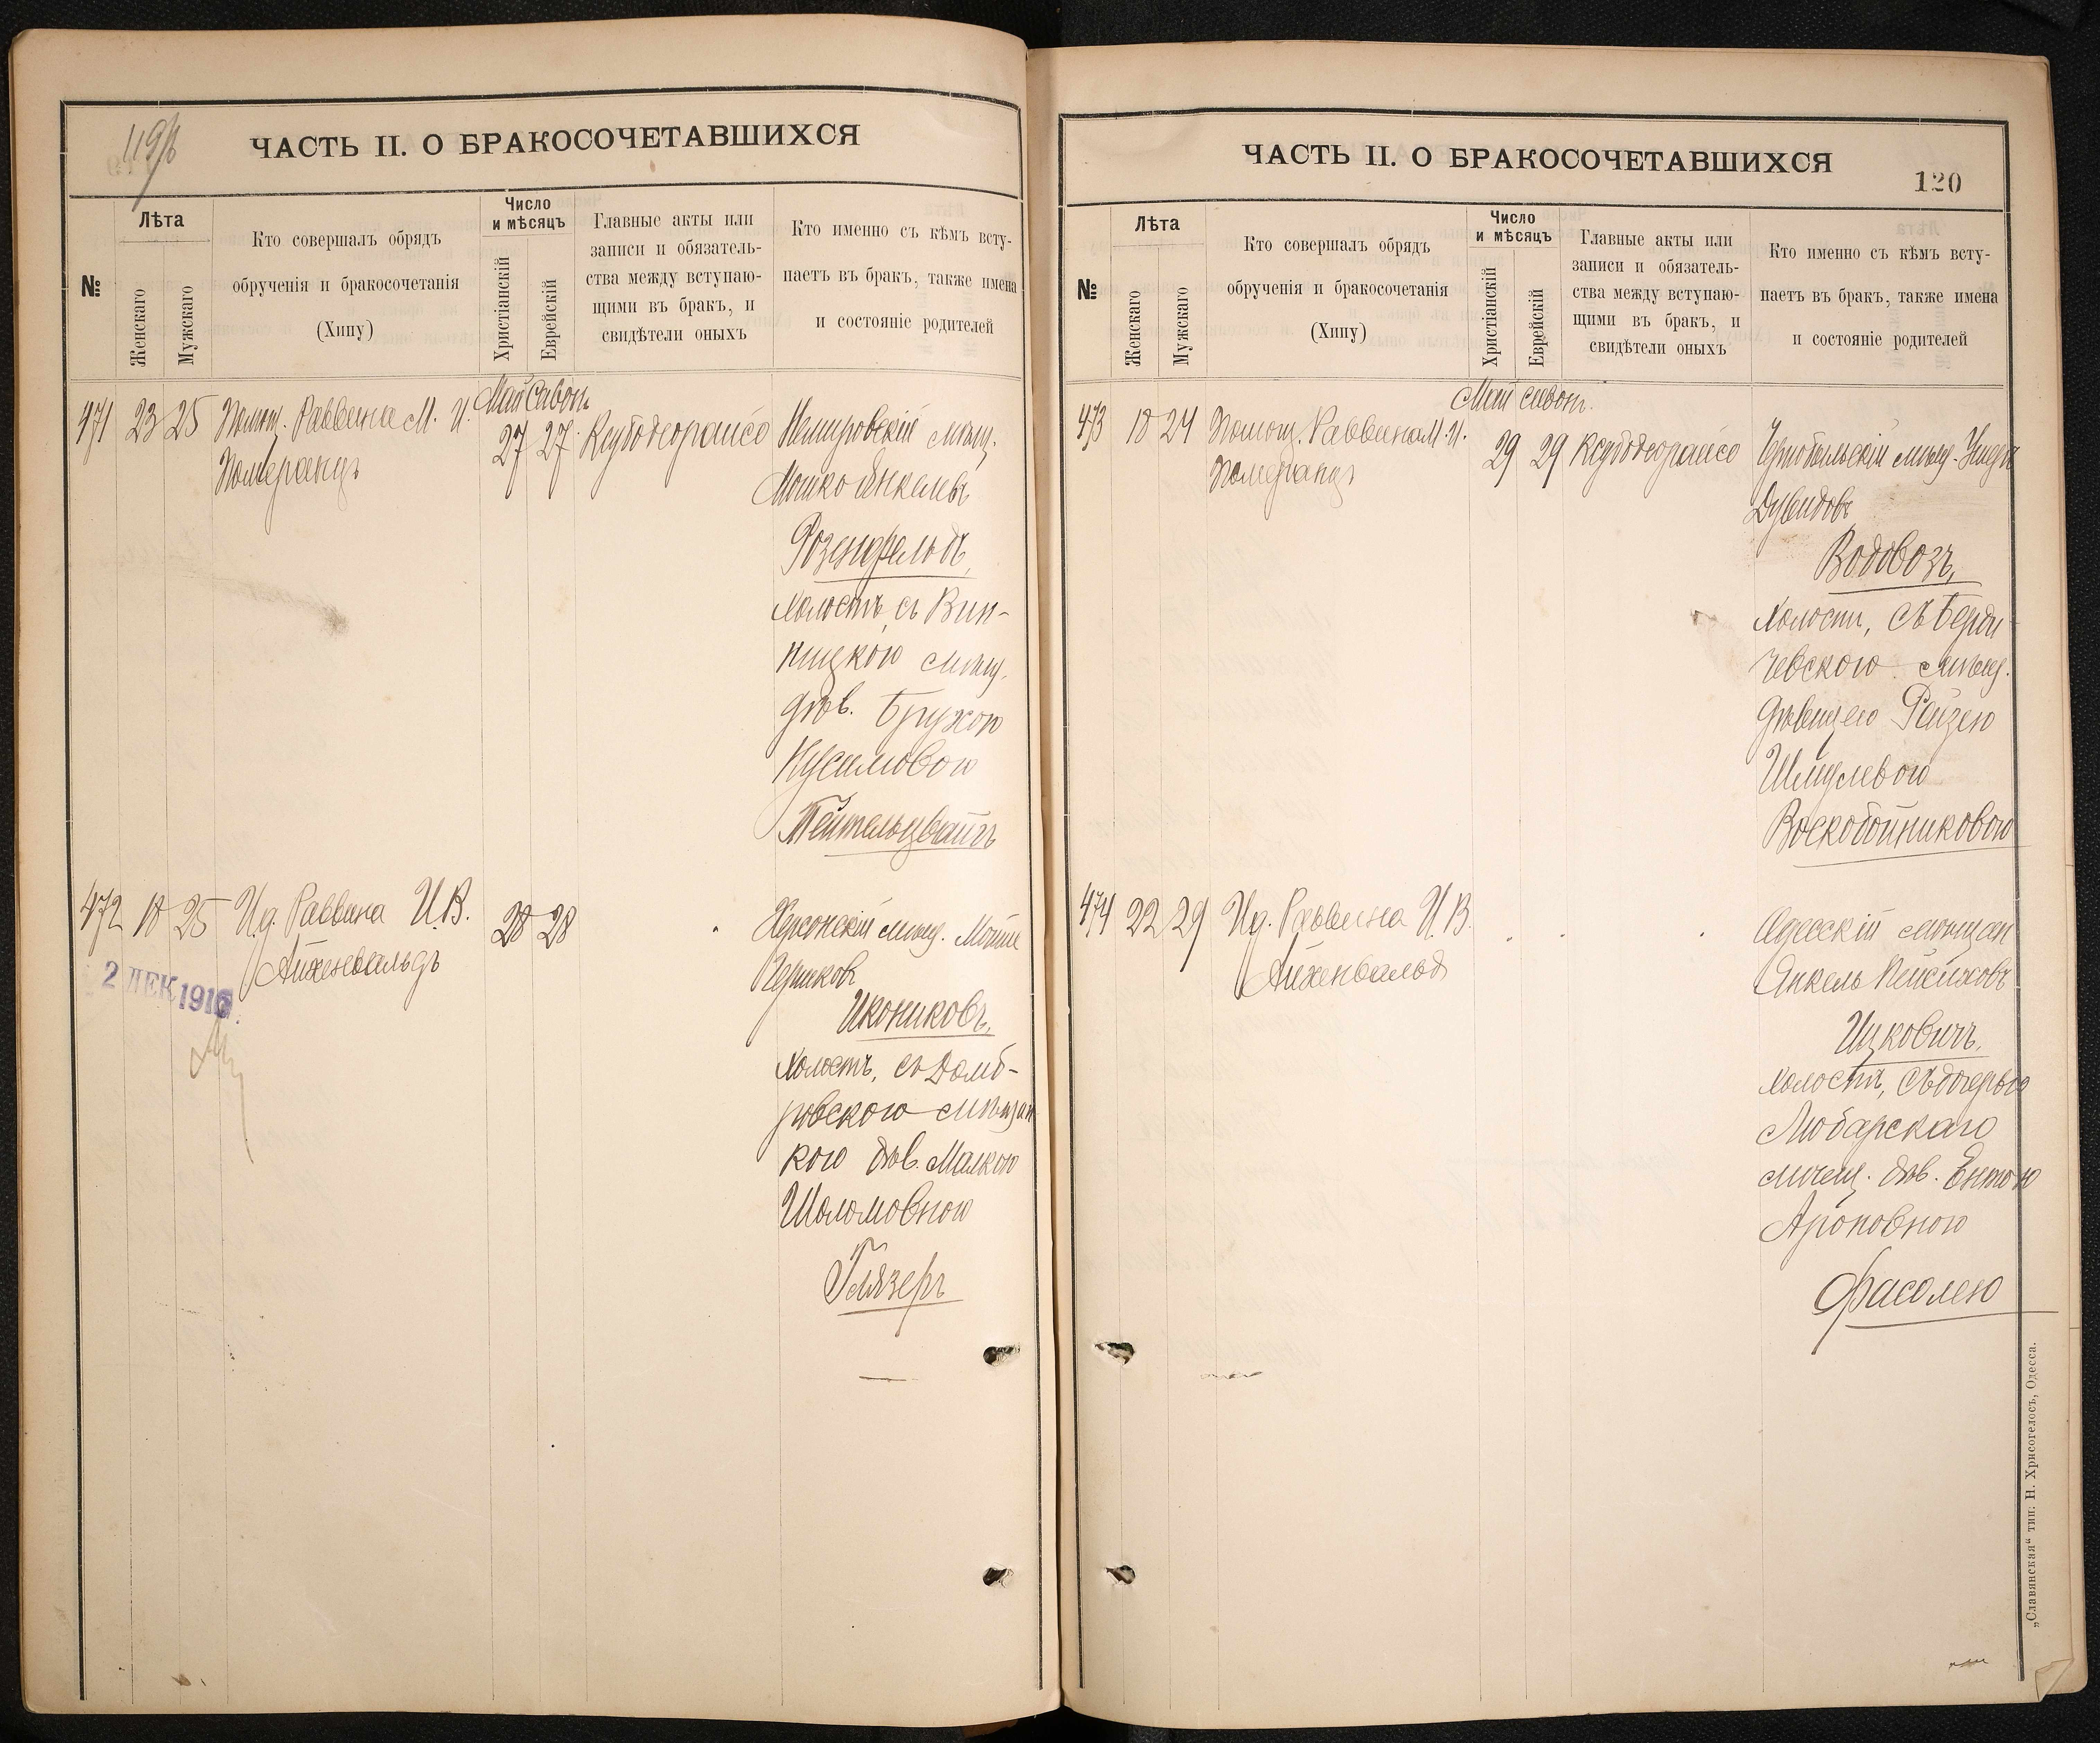 119/б
ЧАСТЬ II. О БРАКОСОЧЕТАВШИХСЯ
№
Лѣта
Женскаго
Мужскаго
Кто совершалъ обрядъ
обрученія и бракосочетанія
(Хипу)
Число
и мѣсяцъ
Христіанскій
Еврейскій
Главные акты или
записи и обязатель-
ства между вступаю-
щими въ бракъ, и
свидѣтели оныхъ
Кто именно съ кѣмъ всту-
паетъ въ бракъ, также имена
и состояніе родителей
Май Сивонъ
471 23 25 Помощ. Раввина М. И. 27 27 Ксубодеорайсо Немировскій мѣщ.
Померанцъ
Мошко Янкелевъ
Розенфельдъ,
холостъ, съ Вин-
ницкою мѣщ.
дѣв. Бружою
Нусимовою
Тейтельцвайгъ
472 18 25 И.д. Раввина И.В. 28 28 Херсонскій мѣщ. Мойше
Айхенвальдъ
Гершковъ
2 ДЕК 1916
Икониковъ,
холостъ, съ Домб-
ровскою мѣщан
кою дѣв. Малкою
Шоломовною
Глязеръ
ЧАСТЬ II. О БРАКОСОЧЕТАВШИХСЯ
120
№
Лѣта
Женскаго
Мужскаго
Кто совершалъ обрядъ
обрученія и бракосочетанія
(Хипу)
Число
и мѣсяцъ
Христіанскій
Еврейскій
Главные акты или
записи и обязатель-
ства между вступаю-
щими въ бракъ, и
свидѣтели оныхъ
Кто именно съ кѣмъ всту-
паетъ въ бракъ, также имена
и состояніе родителей
Май сивон.
473 18 24 Помощ. Раввина М.И. 29 29 Ксубодеорайсо Чернобыльскій мѣщ.
Померанцъ
Дувидовъ
Водовозъ,
холостъ, съ Берди
чевскою мѣщ.
дѣвицею Райзею
Шмулевою
Воскобойниковою
474 22 29 И.д. Раввина И.В. Одесскій мѣщан
Айхенвальд
Янкель Пейсиховъ
Ицковичъ,
холостъ, съ дочерью
Любарскаго
мѣщ. дѣв. Ентою
Ароновною
Фасолею
„Славянская“ тип: Н. Хрисогелосъ, Одесса.